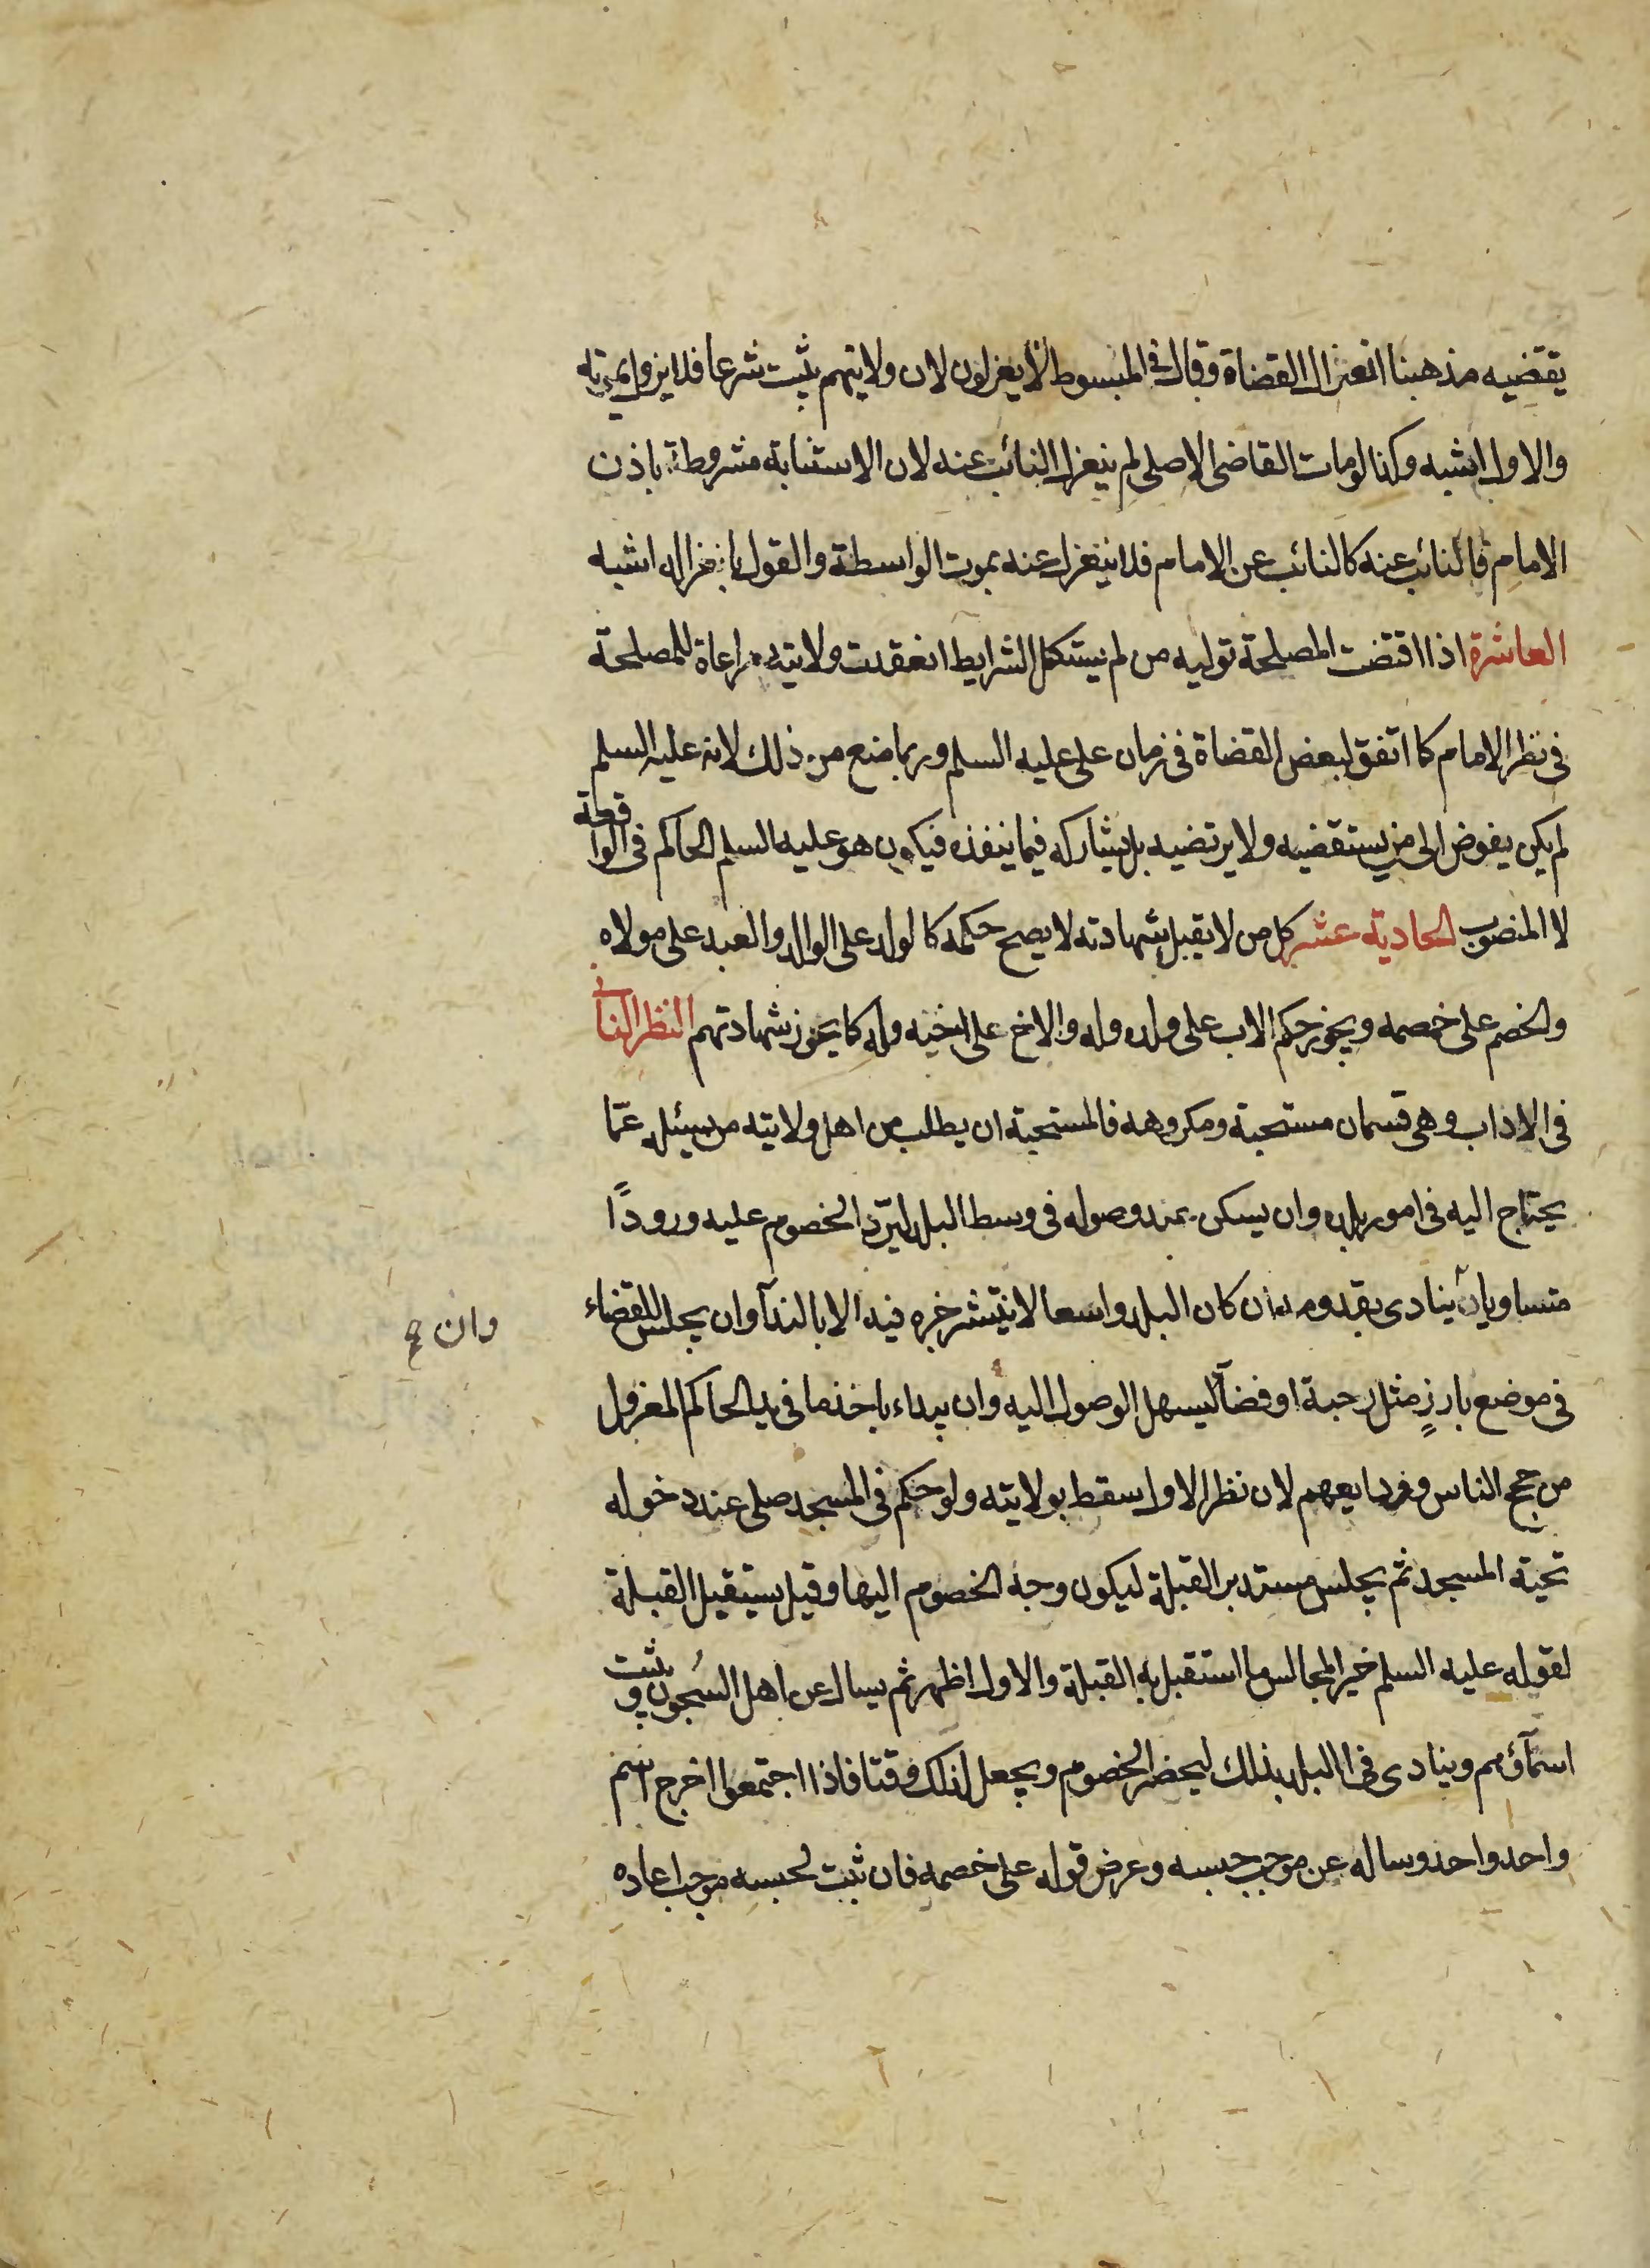 يقتضيه مذهبنا انعزال القضاة وقال في المبسوط لا ينعزلون لان ولايتهم يثبت شرعا فلا يزول بموته
والاول اشبه وكذا لو مات القاضى الاصلى لم ينعزل النائب عنه لان الاستنابة مشروطة باذن
الامام فالنائب عنه كالنائب عن الامام فلا ينعزل عنه بموت الواسطة والقول بانعزاله اشبه
العاشرة اذا اقتضت المصلحة توليه من لم يستكمل الشرايط انعقدت ولايته مراعاة للمصلحة
فى نظر الامام كما اتفق لبعض القضاة فى زمان على عليه السلم وربما منع من ذلك لانه عليه السلم
لم يكن يفوض الى من يستقضيه ولا يرتضيه بل يشاركه فيما ينفذه فيكون هو عليه السلم الحاكم فى الواقعة
لا المنصوب الحادية عشر كل من لا يقبل شهادته لا يصح حكمه كالولد على الوالد والعبد على مولاه
والخصم على خصمه ويجوز حكم الاب على ولده وله والاخ على اخيه وله كما يجوز شهادتهم النظر الثانى
فى الاداب وهى قسمان مستحبة ومكروهه فالمستحبة ان يطلب من اهل ولايته من يسئله عمّا
يحتاج اليه فى امور بلده وان يسكن عند وصوله فى وسط البلد ليرد الخصوم عليه ورودًا
متساويا ينادى بقدومه ان كان البلد واسعا لا ينتشر خبره فيه الا بالندآ وان يجلس للقضاء
وان صح
فى موضع بارزٍ مثل رحبة او فضآ ليسهل الوصول اليه وان يبداء باخذ ما فى يد الحاكم المعزول
من حجج الناس وودايعهم لان نظر الاول سقط بولايته ولو حكم فى المسجد صلى عند دخوله
تحية المسجد ثم يجلس مستدبر القبلة ليكون وجه الخصوم اليها وقيل يستقبل القبلة
لقوله عليه السلم خير المجالس ما استقبل به القبلة والاول اظهر ثم يسال عن اهل السُجون ويثبت
اسمآؤهم وينادى فى البلد بذلك ليحضر الخصوم ويجعل لذلك وقتا فاذا اجتمعوا اخرج اسم
واحد واحد وساله عن موجب حبسه وعرض قوله على خصمه فان ثبت لحبسه موجب اعاده